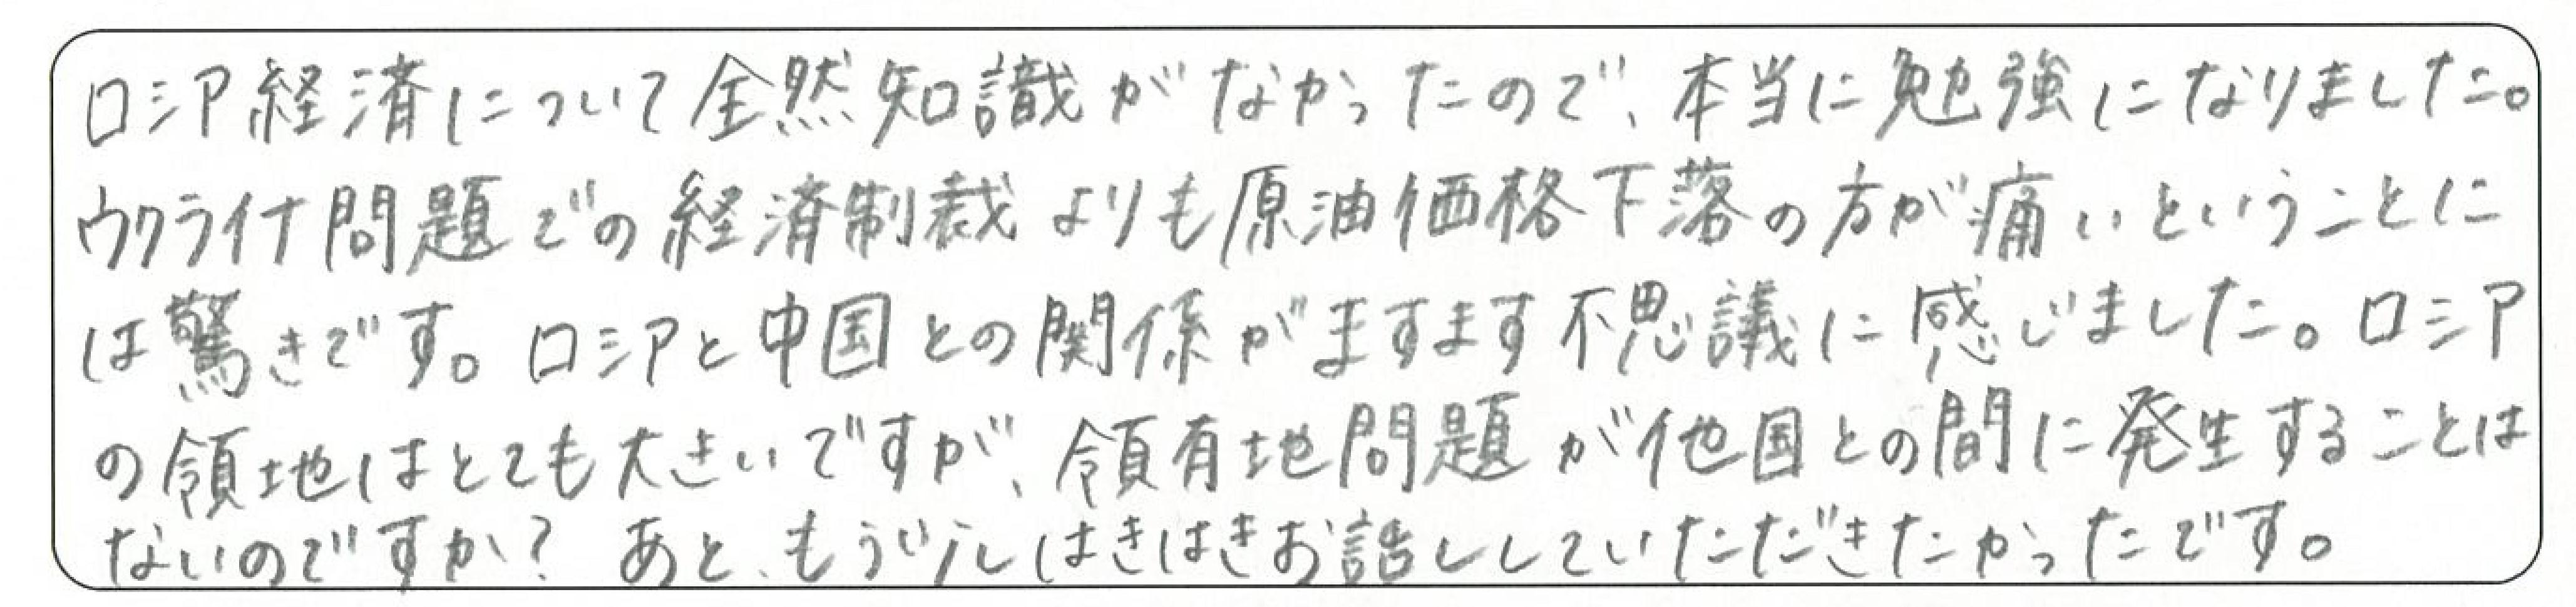 ロシア経済について全然知識がなかったので、本当に勉強になりました。
ウクライナ問題での経済制裁よりも原油価格下落の方が痛いということに
は驚きです。ロシアと中国との関係がますます不思議に感じました。ロシア
の領地はとても大きいですが、領有地問題が他国との間に発生することは
ないのですか？ あと、もう少しはきはきお話ししていただきたかったです。